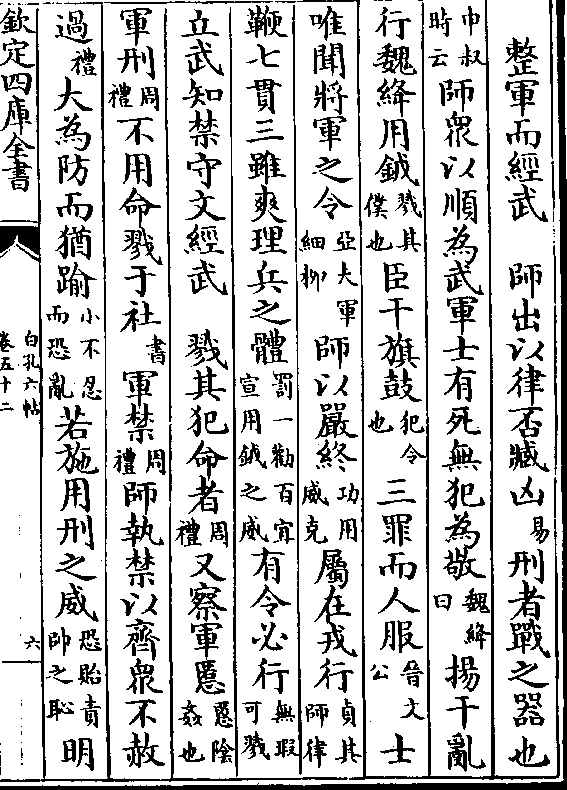 整軍而經武　師出以律否臧凶易刑者戰之器也
申叔時云師衆以順為武軍士有死無犯為敬魏絳曰揚干亂
行魏絳用鉞戮其僕也臣干旗鼓犯令也三罪而人服晉文公士
唯聞將軍之令亞夫軍細柳師以嚴終功用威克屬在戎行貞其師律
鞭七貫三雖爽理兵之體罰一勸百宜宣用鉞之威有令必行無瑕可戮
立武知禁守文經武　戮其犯命者周禮又察軍慝慝陰姦也
軍刑周禮不用命戮于社書軍禁周禮師執禁以齊衆不赦
過禮大為防而猶踰小不忍而恐亂若施用刑之威恐貽責帥之恥明
欽定四庫全書
白孔六帖
卷五十二
六